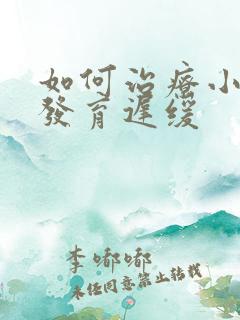 如何治療小
發育遲缓
李嘟嘟
未经同意禁止转载